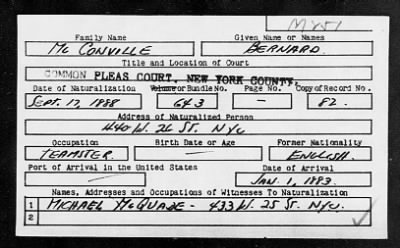 M251
Family Name Given Name or Names
McConville Bernard
Title and Location of Court
COMMON PLEAS COURT, NEW YORK COUNTY.
Date of Naturalization Volume or Bundle No. Page No. Copy of Record No.
Sept. 17, 1888 643 — 82.
Address of Naturalized Person
440 W. 26 St. NYC
Occupation Birth Date or Age Former Nationality
Teamster. — English.
Port of Arrival in the United States Date of Arrival
— Jan. 1, 1883.
Names, Addresses and Occupations of Witnesses To Naturalization
1 Michael McQuade - 433 W. 25 St. NYC.
2